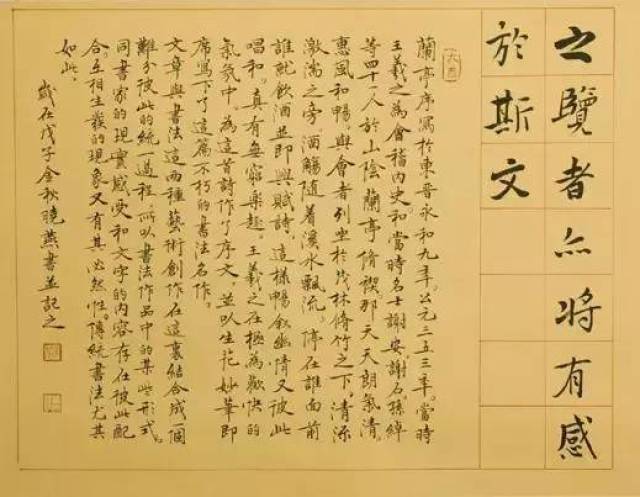 之覽者亦將有感
於斯文
蘭亭序寫於東晉永和九年,公元三五三年。當時
王羲之為會稽內史,和當時名士謝安謝石孫綽
等四十一人於山陰蘭亭脩禊那天天朗氣清。
惠風和暢與會者列坐於茂林脩竹之下,清流
激湍之旁,酒觴隨着溪水飄流,停在誰面前
誰就飲酒並即興賦詩。這樣暢敘幽情又彼此
唱和。真有無窮樂趣。王羲之在極為歡快的
氣氛中。為這首詩作了序文。並以生花妙筆即
席寫下了這篇不朽的書法名作。
文章與書法這兩種藝術創作在這裏結合成一個
難分彼此的統一過程所以書法作品中的某些形式。
同書家的現實感受和文字的內容存在彼此配
合。互相生發的現象又有其必然性。傳統書法尤其
如此。
歲在戊子金秋曉燕書並記之